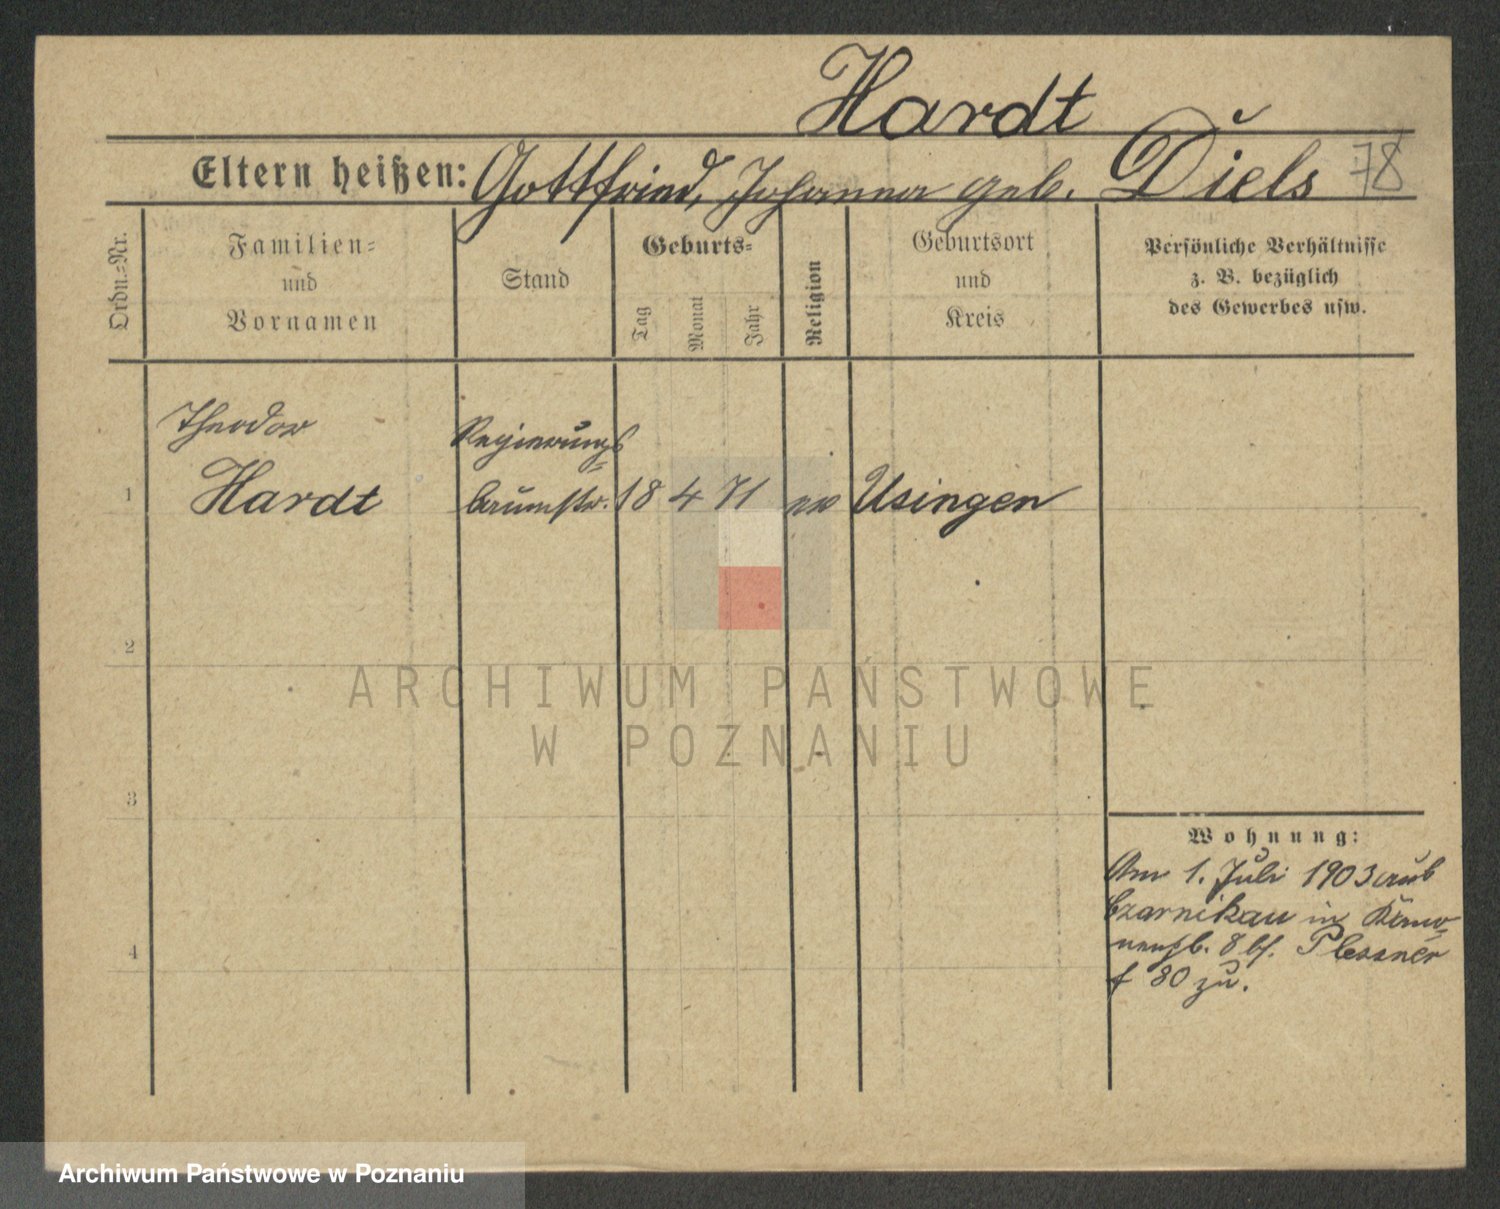 Hardt
Eltern heißen: Gottfried, Johanna geb. Diels 78
Ordn.=Nr.
Familien=
und
Vornamen
Stand
Geburts=
Tag
Monat
Jahr
Religion
Geburtsort
und
Kreis
Persönliche Verhältnisse
z. B. bezüglich
des Gewerbes usw.
Theodor Regierungs=
1 Hardt baumstr. 18 4 71 ev Usingen
2
ARCHIWUM PAŃSTWOWE
W POZNANIU
3
Wohnung:
Am 1. Juli 1903 aus
Czarnikau in
8 bf. Plessner
f 80 zu.
4
Archiwum Państwowe w Poznaniu